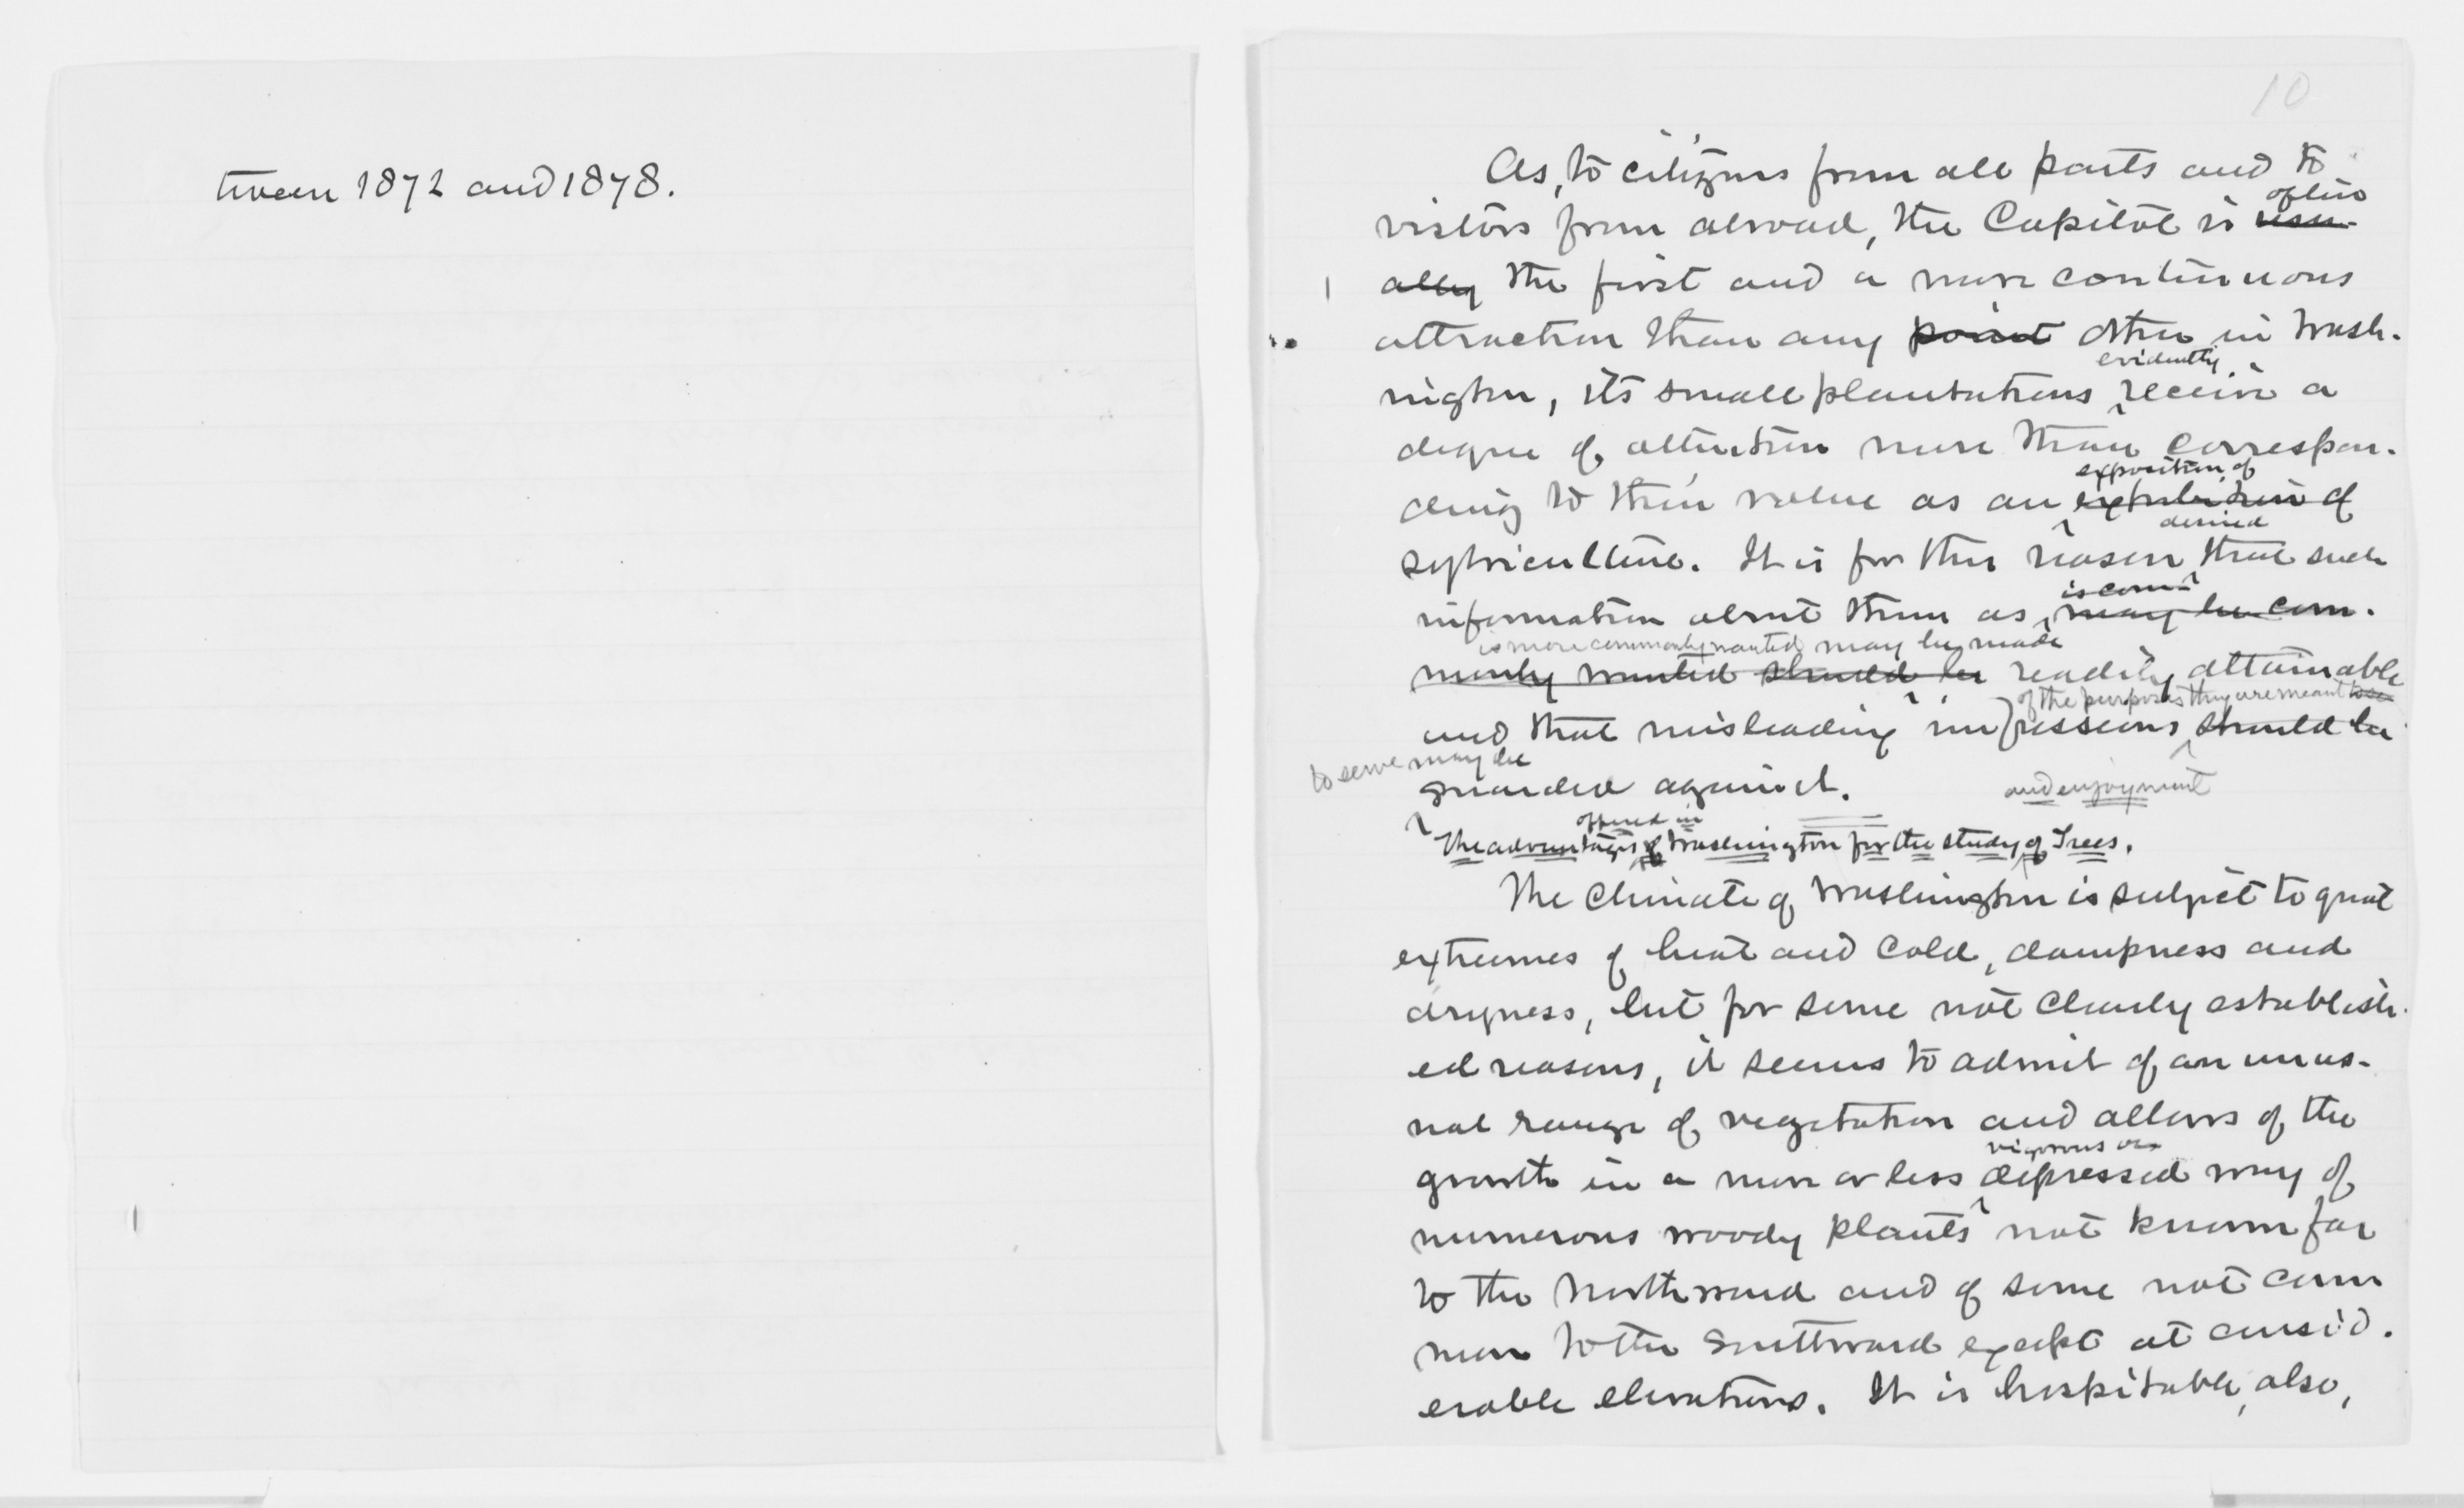 tween 1872 and 1878.
10
As, to citizens from all parts and to
often
visitors from abroad, the Capitol is usu-
ally the first and a more continuous
attraction than any point other in Wash-
evidently
ington, its small plantations receive a
degree of attention more than correspon-
exposition of
ding to their value as an exhibition of
desired
sylviculture. It is for this reason that such
is com-
information about them as may be com-
is more commonly wanted may be made
monly wanted should be readily attainable
of the purposes they are meant to se
and that misleading impressions should be
to serve may be
guarded against.
and enjoyment
offered in
The advantages of Washington for the study of Trees.
The climate of Washington is subject to great
extremes of heat and cold, dampness and
dryness, but for some not clearly establish-
ed reasons, it seems to admit of an unus-
ual range of vegetation and allows of the
vigorous or
growth in a more or less depressed way of
numerous woody plants not known far
to the Northward and of some not com
mon to the Southward except at consid-
erable elevations. It is hospitable, also,